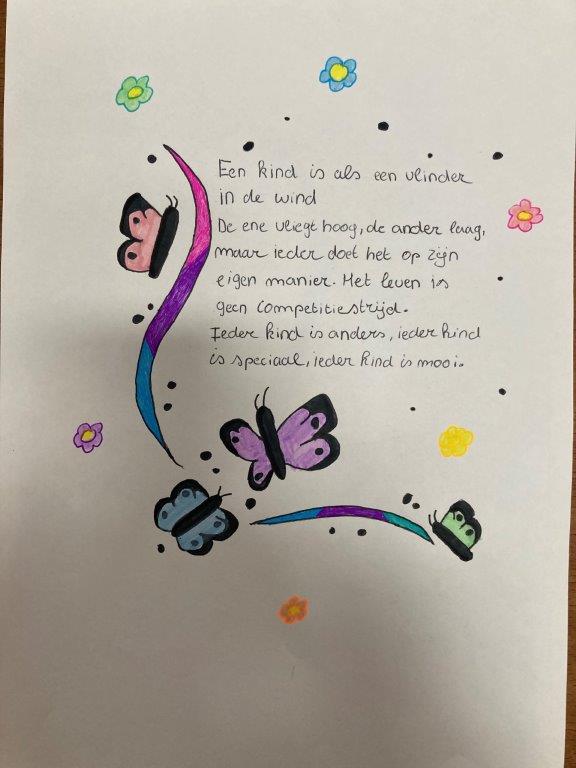 Een kind is als een vlinder
in de wind
De ene vliegt hoog, de ander laag,
maar ieder doet het op zijn
eigen manier. Het leven is
geen competitiestrijd.
Ieder kind is anders, ieder kind
is speciaal, ieder kind is mooi.